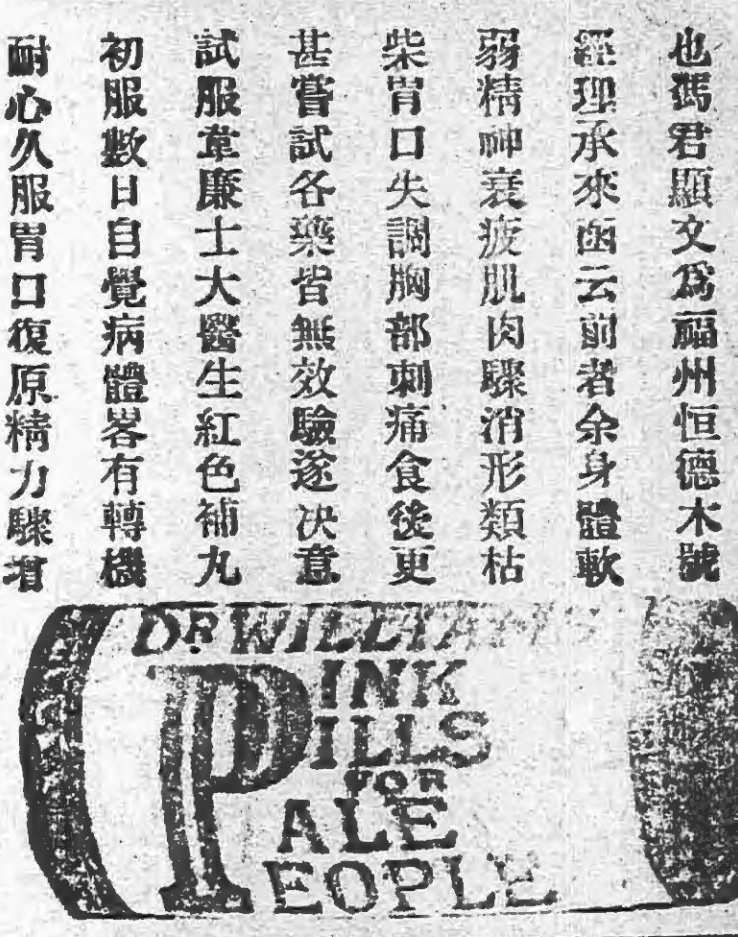 也馮君顯文爲福州恒德木號
經理承來函云前者余身體軟
弱精神衰疲肌肉驟消形類枯
柴胃口失調胸部刺痛食後更
甚嘗試各藥皆無效驗遂决意
試服韋廉士大醫生紅色補丸
初服數日自覺病體畧有轉機
耐心久服胃口復原精力驟增
DR WILLIAMS
PINK
PILLS
FOR
PALE
PEOPLE